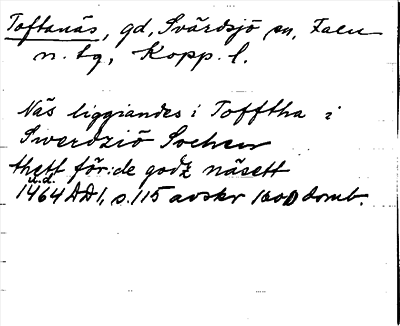 Toftanäs, gd, Svärdsjö sn, Falu
n. tg, Kopp. l.
Näs liggiandes i Tofftha i
Swerdziö Sochen
thett för:de godz näsett
u.d.
1464 AA1, s. 115 avskr 1600 domb.